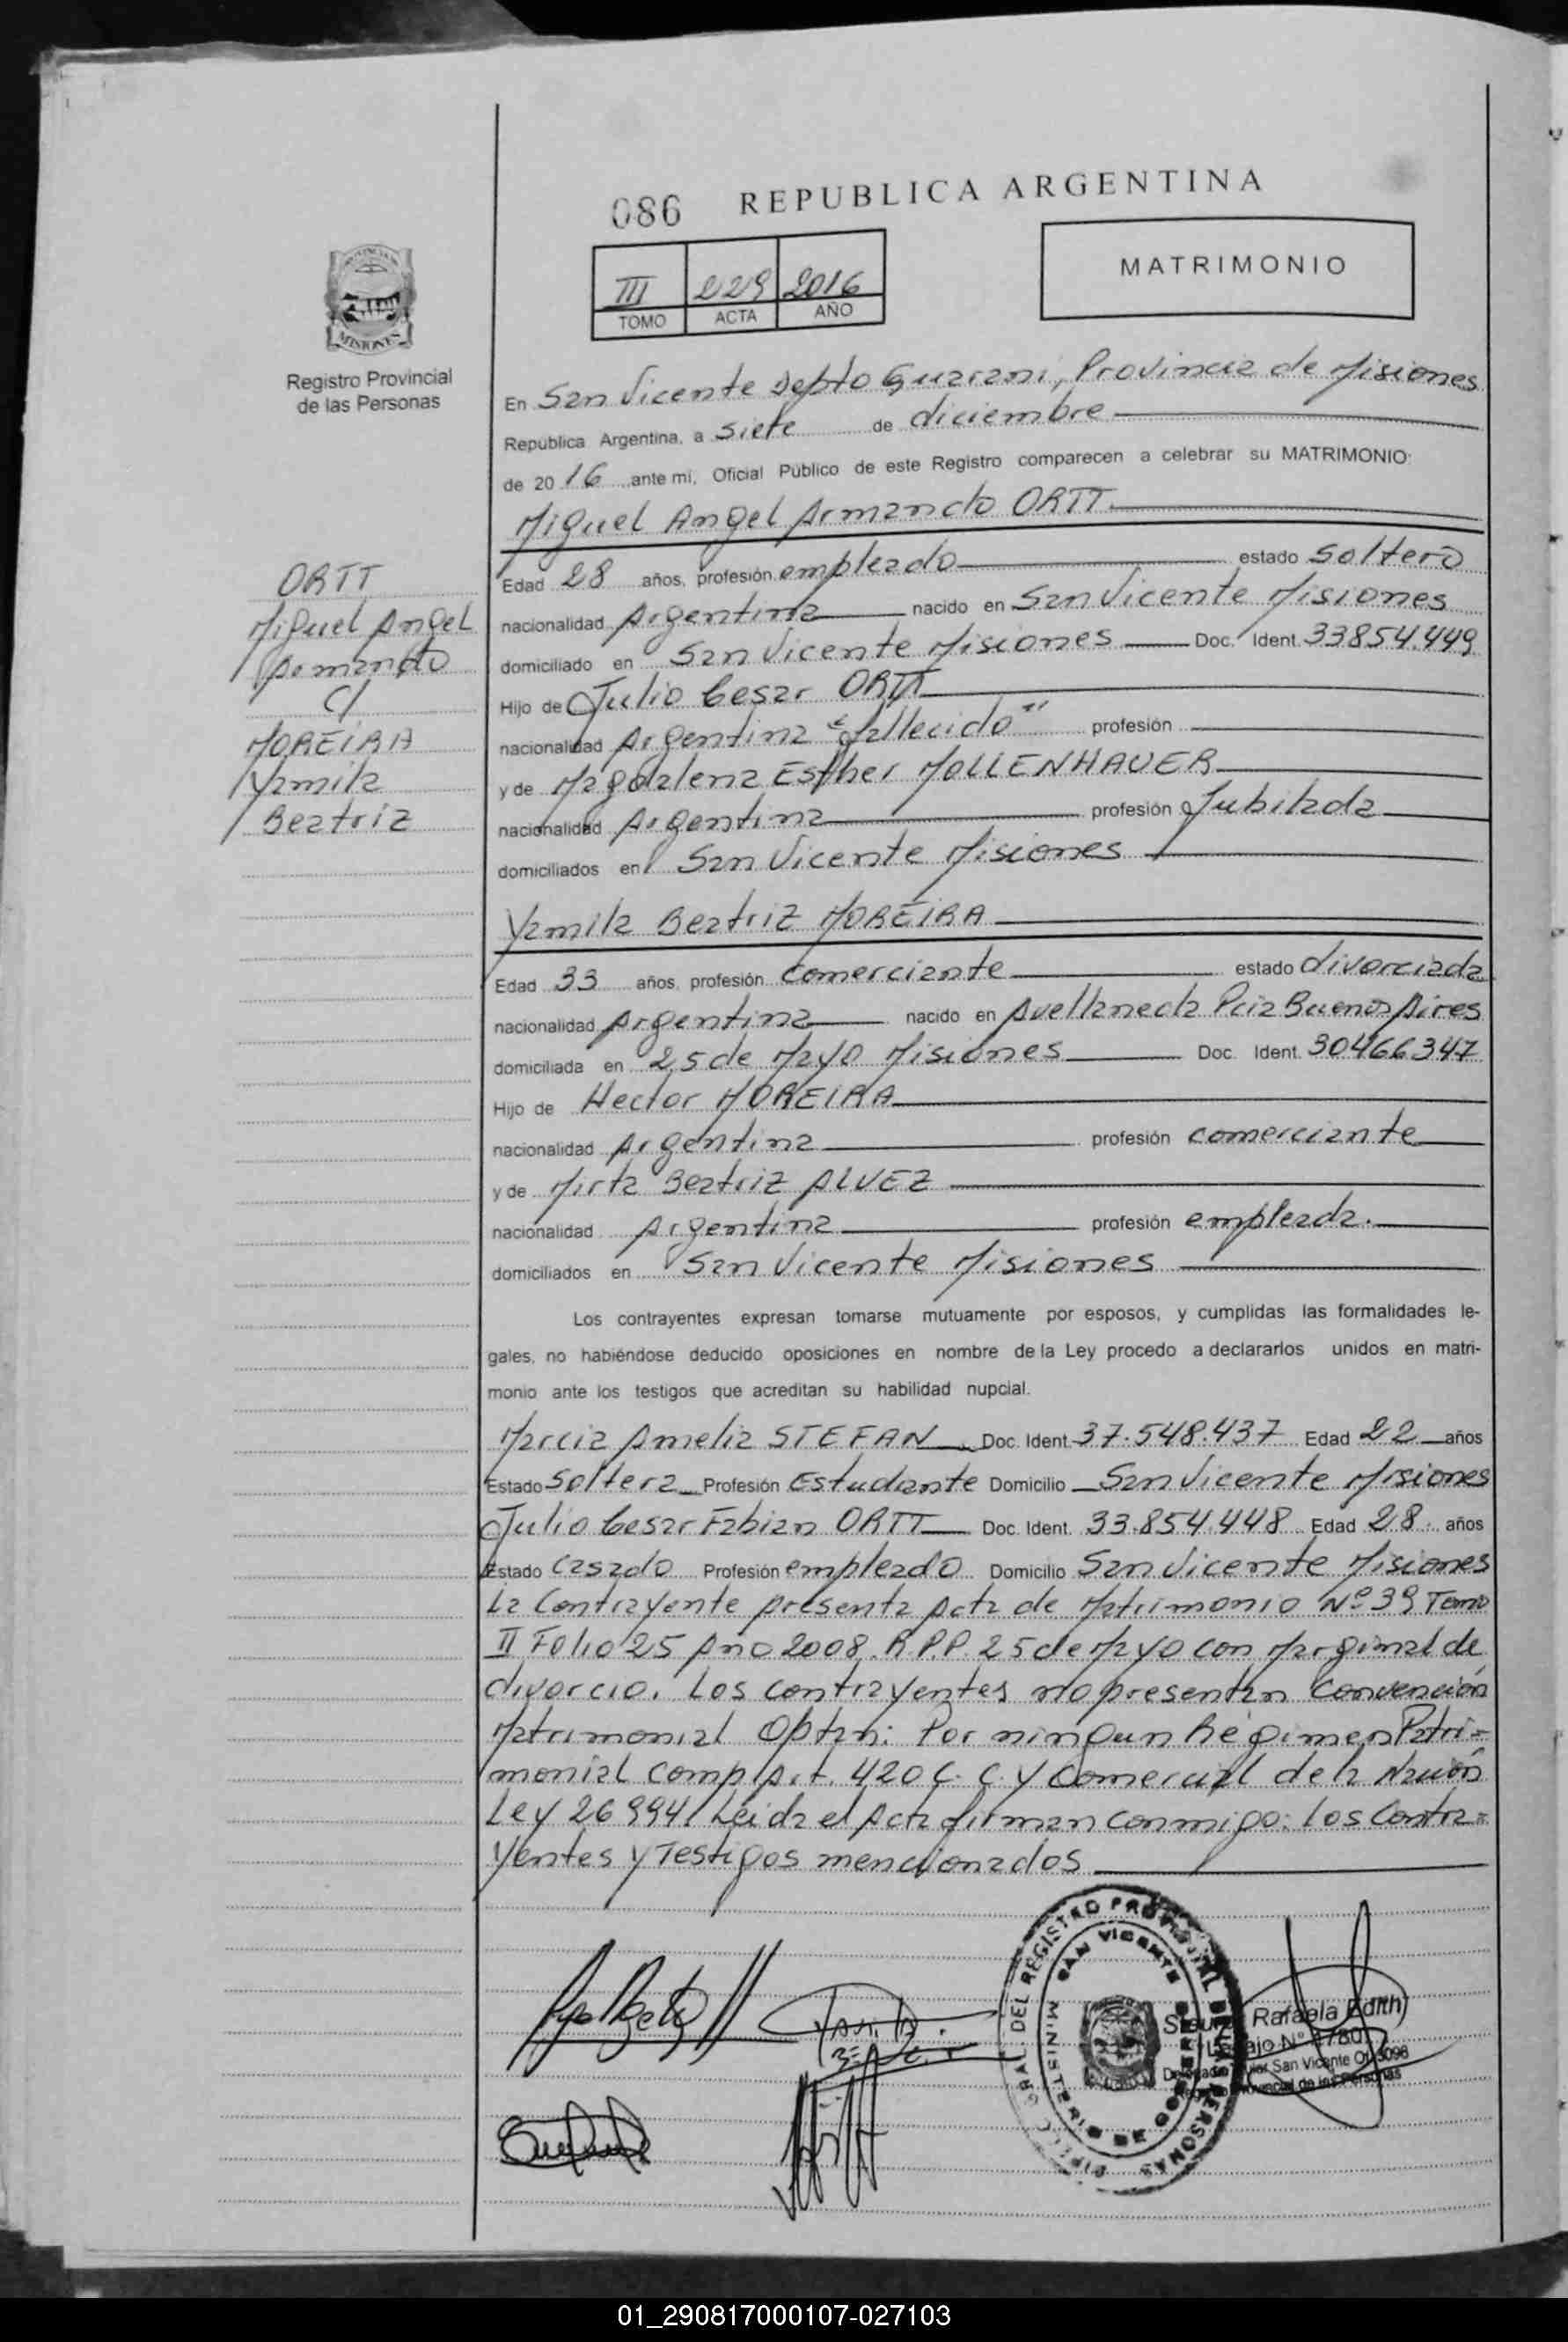 086 REPUBLICA ARGENTINA
III 229 2016
TOMO ACTA AÑO
MATRIMONIO
PROVINCIA DE
MISIONES
Registro Provincial
de las Personas
En San Vicente Depto Guarani, Provincia de Misiones
República Argentina, a siete de diciembre
de 2016 ante mi, Oficial Público de este Registro comparecen a celebrar su MATRIMONIO:
Miguel Angel Armando ORTT
ORTT
Miguel Angel
Armando
C/
MOREIRA
Yamila
Beatriz
Edad 28 años, profesión empleado estado soltero
nacionalidad Argentina nacido en San Vicente Misiones
domiciliado en San Vicente Misiones Doc. Ident. 33854.449
Hijo de Julio Cesar ORTT
nacionalidad Argentina "fallecido" profesión
y de Magdalena Esther MOLLENHAUER
nacionalidad Argentina profesión Jubilada
domiciliados en San Vicente Misiones
Yamila Beatriz MOREIRA
Edad 33 años, profesión comerciante estado divorciada
nacionalidad Argentina nacido en Avellaneda Pcia Buenos Aires
domiciliada en 25 de Mayo Misiones Doc. Ident. 30466347
Hijo de Hector MOREIRA
nacionalidad Argentina profesión comerciante
y de Mirta Beatriz ALVEZ
nacionalidad Argentina profesión empleada.
domiciliados en San Vicente Misiones
Los contrayentes expresan tomarse mutuamente por esposos, y cumplidas las formalidades le-
gales, no habiéndose deducido oposiciones en nombre de la Ley procedo a declararlos unidos en matri-
monio ante los testigos que acreditan su habilidad nupcial.
Marcia Amelia STEFAN Doc. Ident. 37.548.437 Edad 22 años
Estado Soltera Profesión Estudante Domicilio San Vicente Misiones
Julio Cesar Fabian ORTT Doc. Ident. 33.854.448 Edad 28 años
Estado Casado Profesión empleado Domicilio San Vicente Misiones
La Contrayente presenta Acta de Matrimonio Nº 39 Tomo
II Folio 25 Año 2008. R.P.P. 25 de Mayo con Marginal de
divorcio. Los contrayentes no presentan Convención
Matrimonial Optan: Por ningun Régimen Patri=
monial Comp/Art. 420 C. C. y Comercial de la Nación
Ley 26994/ Leida el Acta firman conmigo: los Contra=
yentes y Testigos mencionados
GRAL. DEL REGISTRO PROVINCIAL DE LAS PERSONAS
SAN VICENTE
MINISTERIO DE GOBIERNO
Rafaela Edith
San Vicente Of. 3096
Provincial de las Personas
01_290817000107-027103